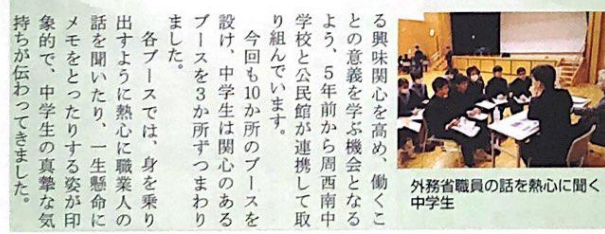 る興味関心を高め、働くこ
との意義を学ぶ機会となる
よう、5年前から周西南中
学校と公民館が連携して取
り組んでいます。
今回も10か所のブースを
設け、中学生は関心のある
ブースを3か所ずつまわり
ました。
各ブースでは、身を乗り
出すように熱心に職業人の
話を聞いたり、一生懸命に
メモをとったりする姿が印
象的で、中学生の真摯な気
持ちが伝わってきました。
外務省職員の話を熱心に聞く
中学生